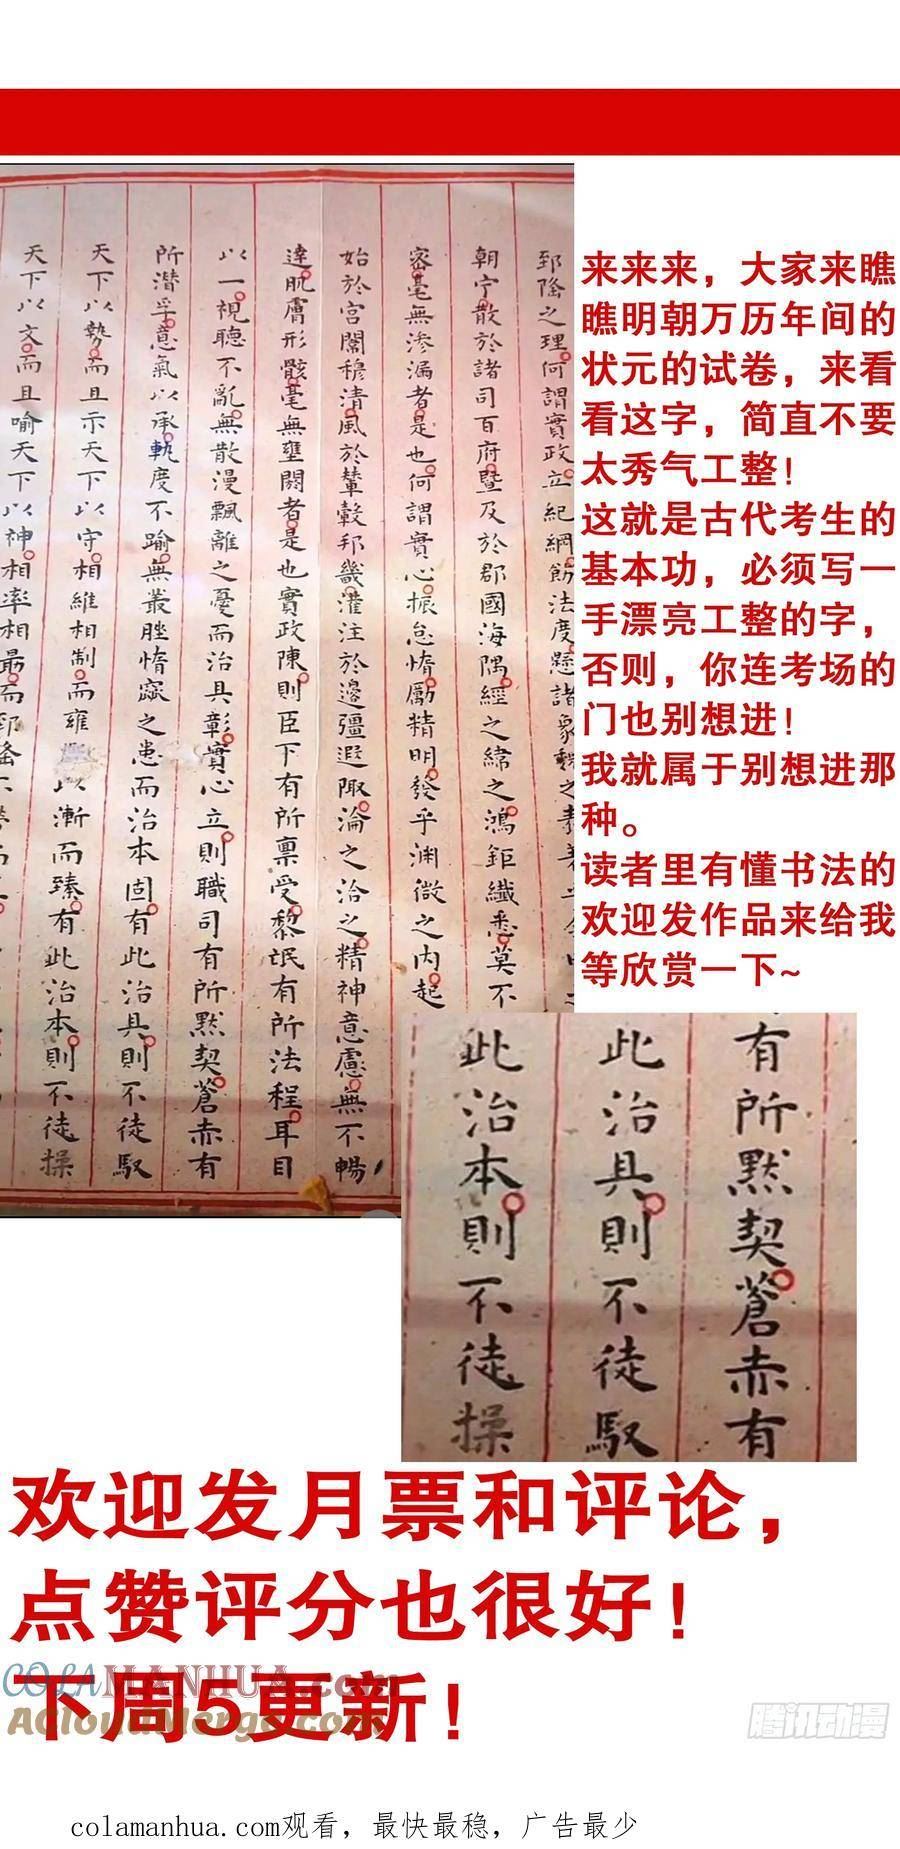 郅隆之理何謂實政立紀綱飭法度懸諸象魏之表著乎令甲之
朝宁散於諸司百府暨及於郡國海隅經之緯之鴻鉅纖悉莫不
密毫無滲漏者是也何謂實心振怠惰勵精明發乎淵微之内起
始於宮闈穆清風於輦轂邦畿灌注於邊疆遐陬淪之洽之精神意慮無不暢
達肌膚形骸毫無壅閼者是也實政陳則臣下有所禀受黎氓有所法程耳目
以一視聽不亂無散漫飄離之憂而治具彰實心立則職司有所黙契蒼赤有
所潜孚意氣以承軌度不踰無叢脞惰窳之患而治本固有此治具則不徒馭
天下以勢而且示天下以守相維相制而雍以漸而臻有此治本則不徒操
天下以文而且喻天下以神相率相最而郅隆
来来来，大家来瞧
瞧明朝万历年间的
状元的试卷，来看
看这字，简直不要
太秀气工整！
这就是古代考生的
基本功，必须写一
手漂亮工整的字，
否则，你连考场的
门也别想进！
我就属于别想进那
种。
读者里有懂书法的
欢迎发作品来给我
等欣赏一下~
有所黙契蒼赤有
此治具則不徒馭
此治本則不徒操
欢迎发月票和评论，
点赞评分也很好！
下周5更新！
COLAMANHUA.com
ACloudMerge.com
腾讯动漫
colamanhua.com观看，最快最稳，广告最少